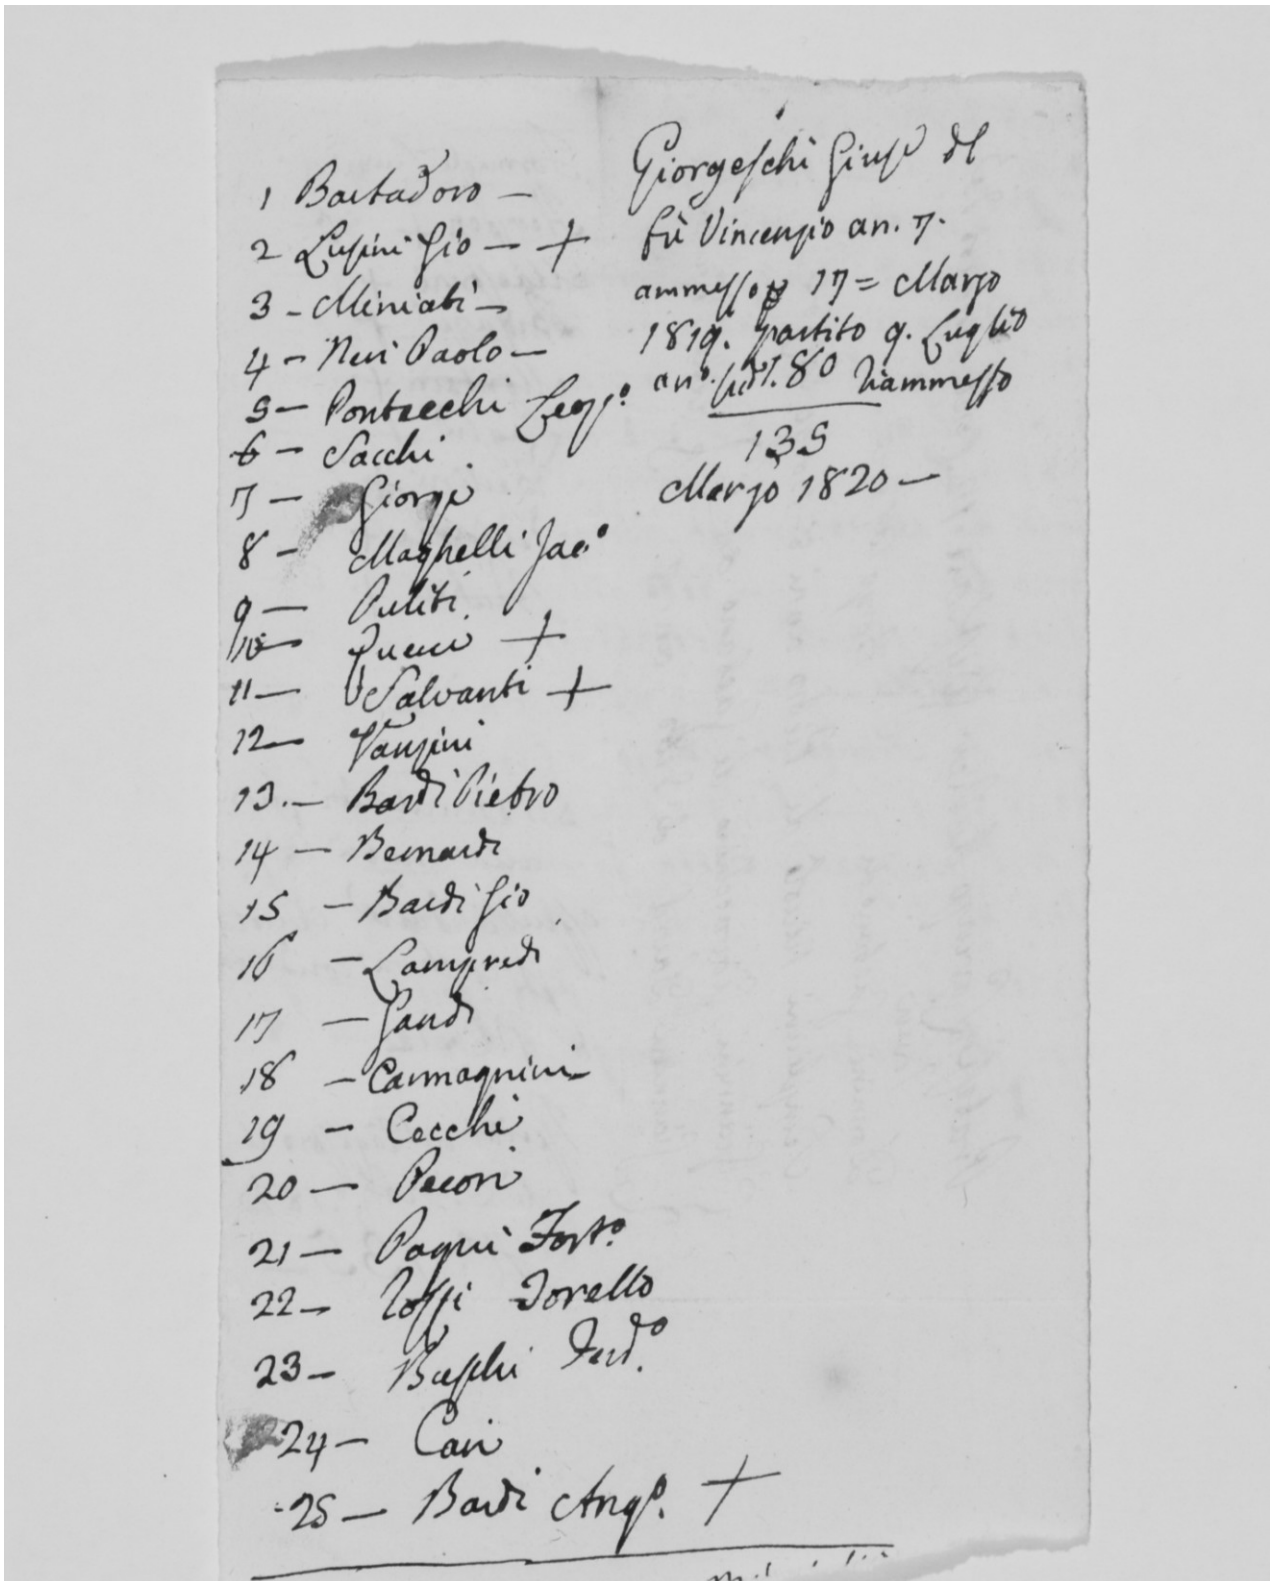 1 Bartadoro —
2 Lupini Gio — +
3 - Miniati —
4 - Neri Paolo —
5 — Pontecchi Leop.º
6 — Sacchi
7 — Giorgi
8 — Maghelli Jac.º
9 — Puliti
10 — Pucci +
11 — Salvanti +
12 — Vanzini
13. — Bardi Pietro
14 — Bernardi
15 — Bardi Gio
16 — Lampredi
17 — Gandi
18 — Carmagnini
19 — Cecchi
20 — Pecori
21 — Pagni Fort.º
22 — Rossi Torello
23 — Buschi Ferd.º
24 — Cari
25 — Bardi Ang.º +
Giorgeschi Giuse del
fù Vincenzio an. 7.
ammesso 17 = Marzo
1819. partito 9. Luglio
an.º 80 riammesso
135
Marzo 1820 —